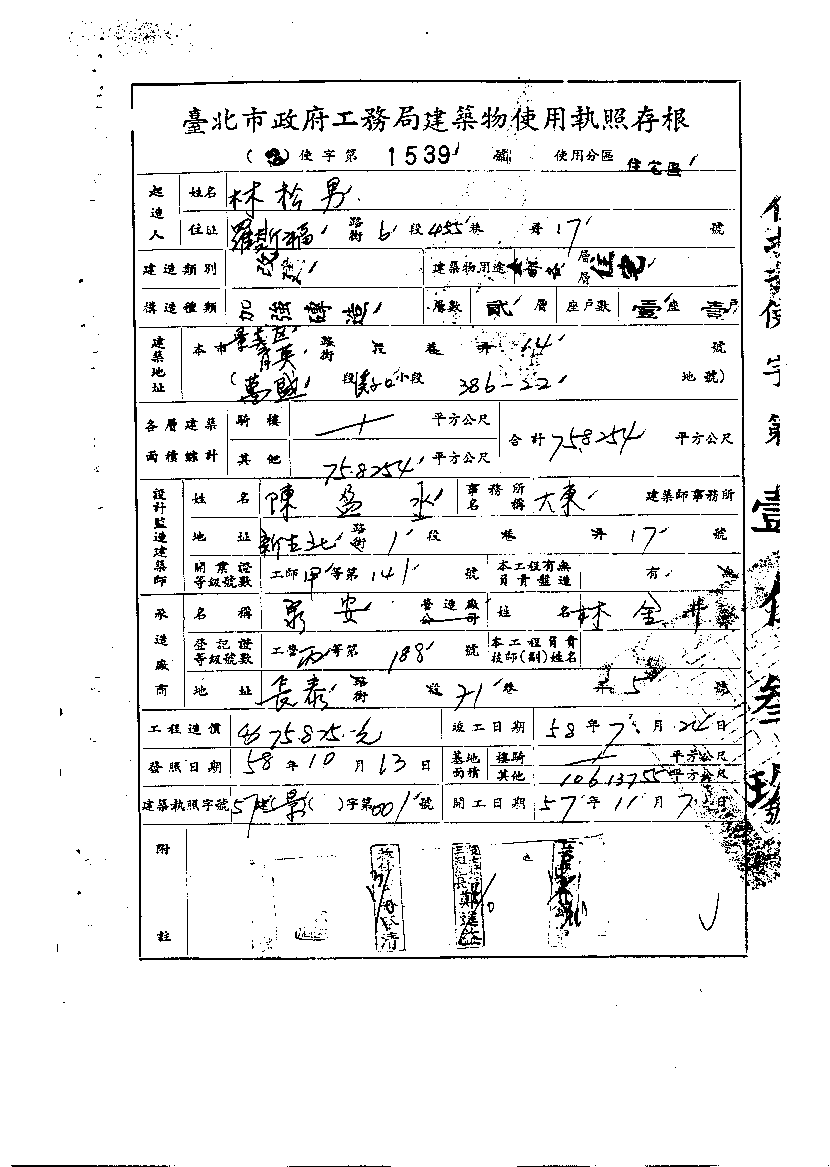 臺北市政府工務局建築物使用執照存根
( ) 使字第 1539 號 使用分區 住宅區
起造人 姓名 林松男
住址 羅斯福 路街 6 段 455 巷 弄 17 號
建造類別 建築物用途 層層 住宅
構造種類 加強磚造 層數 貳 層 座戶數 壹 座 壹 戶
建築地址 本市 景美區 育英 路街 段 巷 弄 14 號
( 萬盛 段 小段 386-22 地號)
各層建築面積總計 騎樓 平方公尺 合計 758254 平方公尺
其他 758254 平方公尺
設計監造建築師 姓名 陳盈 事務所名稱 大東 建築師事務所
地址 新生北 路街 1 段 巷 弄 17 號
開業證等級號數 工師 甲 等第 141 號 本工程有無負責監造 有 無
承造廠商 名稱 泉安 營造廠公司 姓名 林金井
登記證等級號數 工營 丙 等第 188 號 本工程負責技師(副)姓名
地址 長泰 路街 段 71 巷 弄 5 號
工程造價 75825元 竣工日期 58 年 7 月 日
發照日期 58 年 10 月 13 日 基地面積 樓騎 平方公尺
其他 10613755 平方公尺
建築執照字號 57 建( 景 )字第 001 號 開工日期 57 年 11 月 7 日
附註